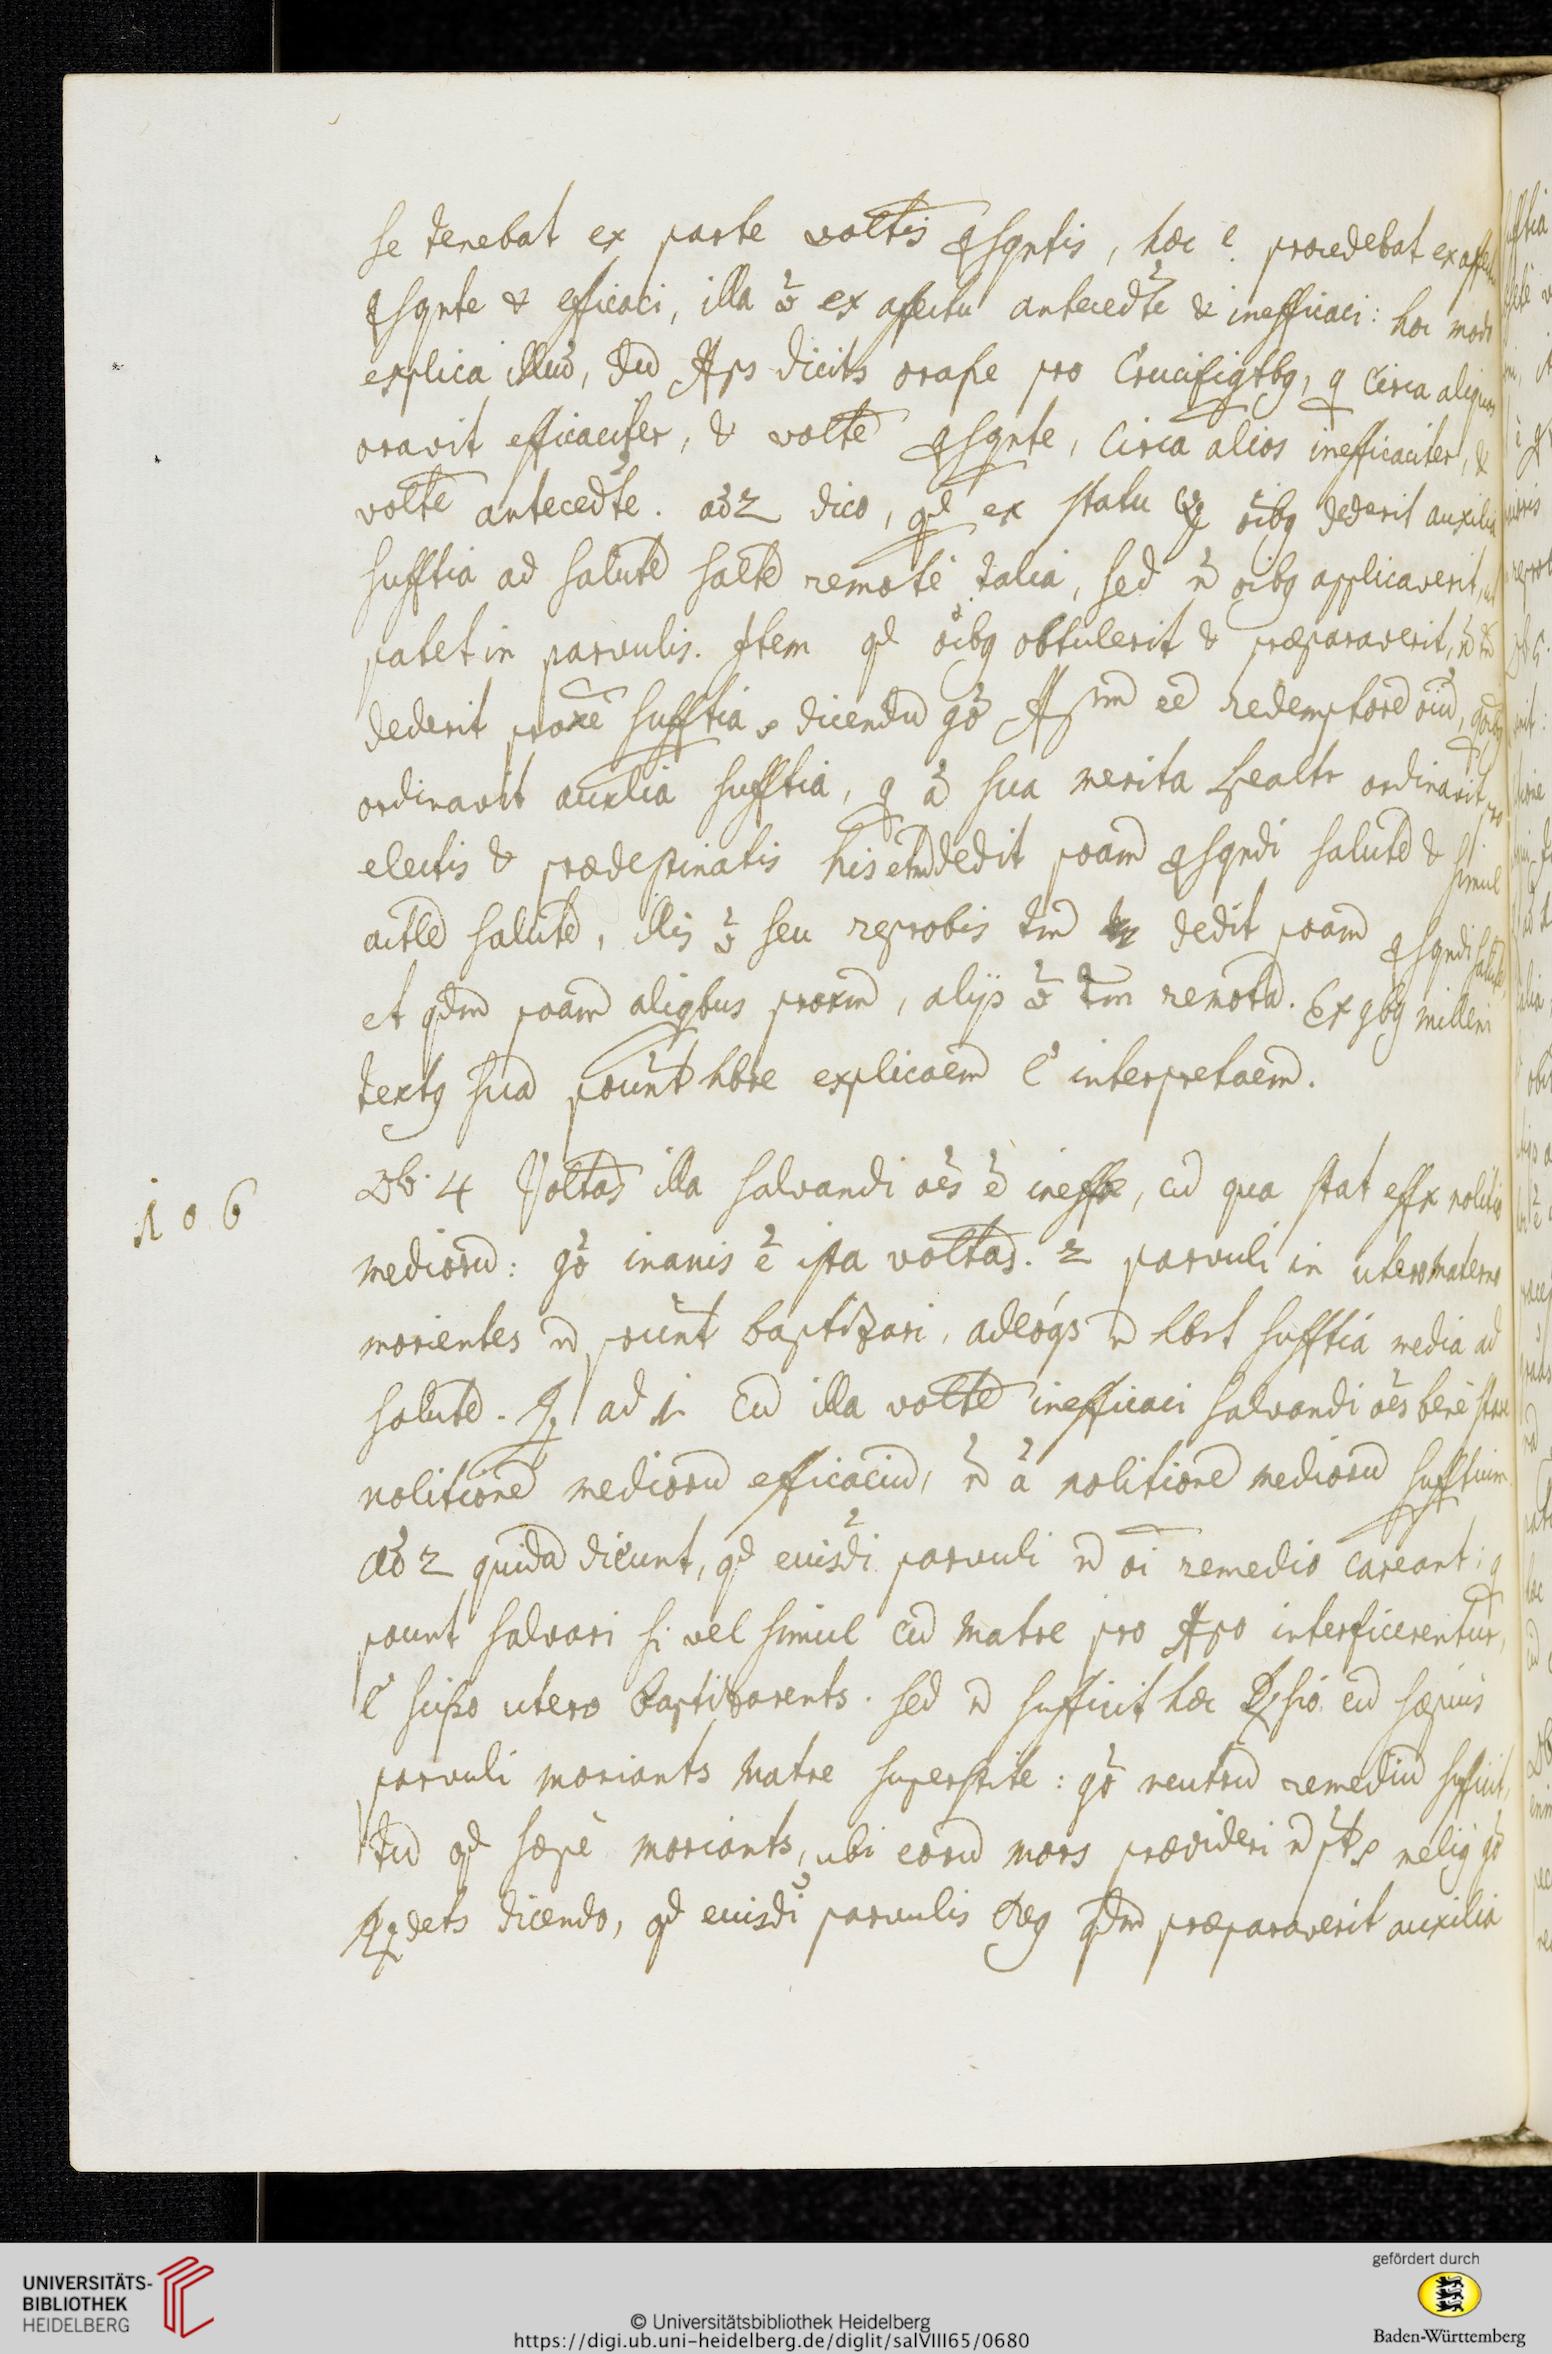 se tenebat ex parte voltis qsqntis, hoc e. procedebat ex affectu
qsqnte & efficaci, illa v̊o ex affectu antecedte & inefficaci: hoc modo
explica illud, du Xps dicits orasse pro Crucifigtbg, q circa aliquos
oravit efficaciter, & volte qsqnte, circa alios inefficaciter, &
volte antecedte. ad 2 dico, qd ex statu oibg dederit auxilia
sufftia ad salute salte remote talia, sed n oibg applicaverit, ut
patet in parvulis. Item qd oibg obtulerit & præparaverit, n tn
dederit proxe sufftia, dicendu go Xstm ee redemptore oiu,
ordinavit auxlia sufftia, q a sua merita ordinavit pro
electis & prædestinatis his etm dedit poam qsqndi salute & simul
actle salute, illis vo seu reprobis tm dedit poam qsqndi salute,
et qdm poam aliqbus proxm, alijs vo tm remota. Ex qbg milleni
textg sua pount hbre explicaem l interpretaem.
106
Ob. 4 Voltas illa salvandi oes e ineffx, cu qua stat effx nolitio
medioru: go inanis e ista voltas. 2 parvuli in utero materno
morientes n pount baptizari, adeoqs n hbnt sufftia media ad
salute. R ad 1 cu illa volte inefficaci salvandi oes bene stare
nolitione medioru efficaciu, n a nolitione medioru sufftium
Ad 2 quida dicunt, qd euisdi parvuli n oi remedio careant: q
pount salvari si vel simul cu matre pro Xpo interficerentur,
l scisso utero baptizarents. sed n sufficit hæc Rsio. cu sæpius
parvuli moriants matre superstite: go neutru remediu sufficit,
tu qd sæpe moriants, ubi eoru mors prævideri n pt, melig go
Rdets dicendo, qd euisdi parvulis Deg qdm præparaverit auxilia
UNIVERSITÄTS-
BIBLIOTHEK
HEIDELBERG
© Universitätsbibliothek Heidelberg
https://digi.ub.uni-heidelberg.de/diglit/salVIII65/0680
gefördert durch
Baden-Württemberg